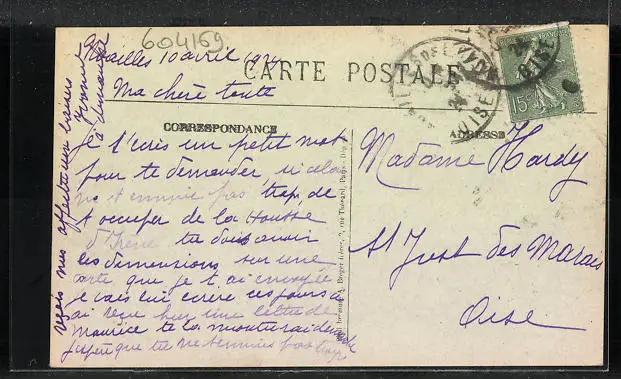 604169
Noailles 10 avril 1924
CARTE POSTALE
Ma chère tante
CORRESPONDANCE
ADRESSE
Je t'écris un petit mot
pour te demander, si cela
ne t ennuie pas trop, de
t occuper de la housse
d'Irène tu dois avoir
les dimensions sur une
carte que je t ai envoyée
je vais lui écrire ces jours ci
ai reçu hier une lettre de
Maurice te la montrerai
j'espère que tu ne t'ennuies pas trop
reçois mes affectueux baisers
Madame Hardy
St Just des Marais
Oise
15
OISE